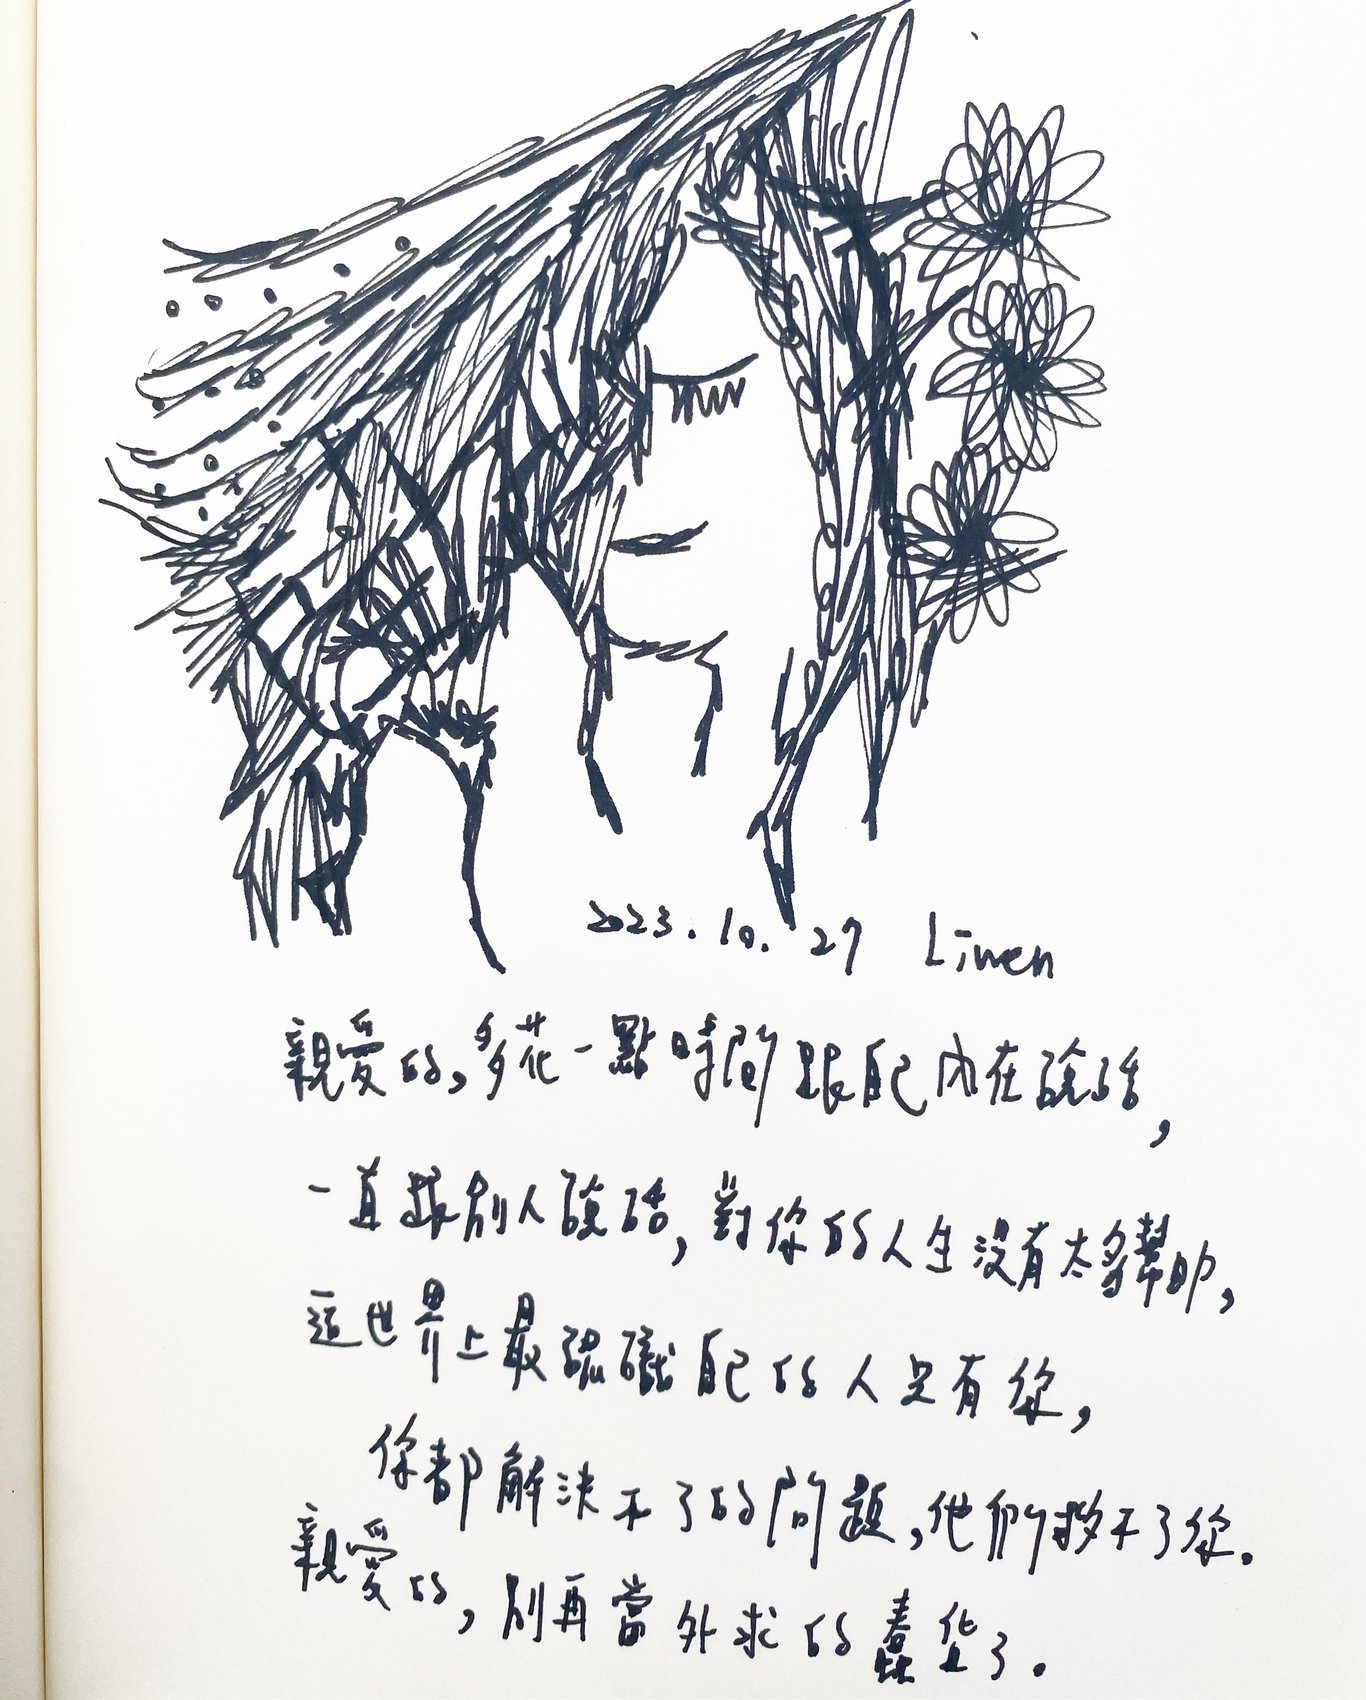 2023.10.27 Liwen
親愛的,多花一點時間跟自己內在說話,
一直跟別人說話,對你的人生沒有太多幫助,
這世界上最認識自己的人只有你,
你都解決不了的問題,他們救不了你.
親愛的,別再當外求的蠢貨了.